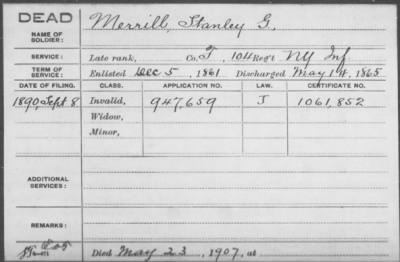 DEAD
NAME OF SOLDIER: Merrill, Stanley G.
SERVICE: Late rank, Co. F, 104 Reg't NY Inf.
TERM OF SERVICE: Enlisted Dec 5, 1861. Discharged May 14, 1865
DATE OF FILING. CLASS. APPLICATION NO. LAW. CERTIFICATE NO.
1890, Sept 8 Invalid, 947,659 J 1061,852
Widow,
Minor,
ADDITIONAL SERVICES:
REMARKS:
Died May 23, 1907, at